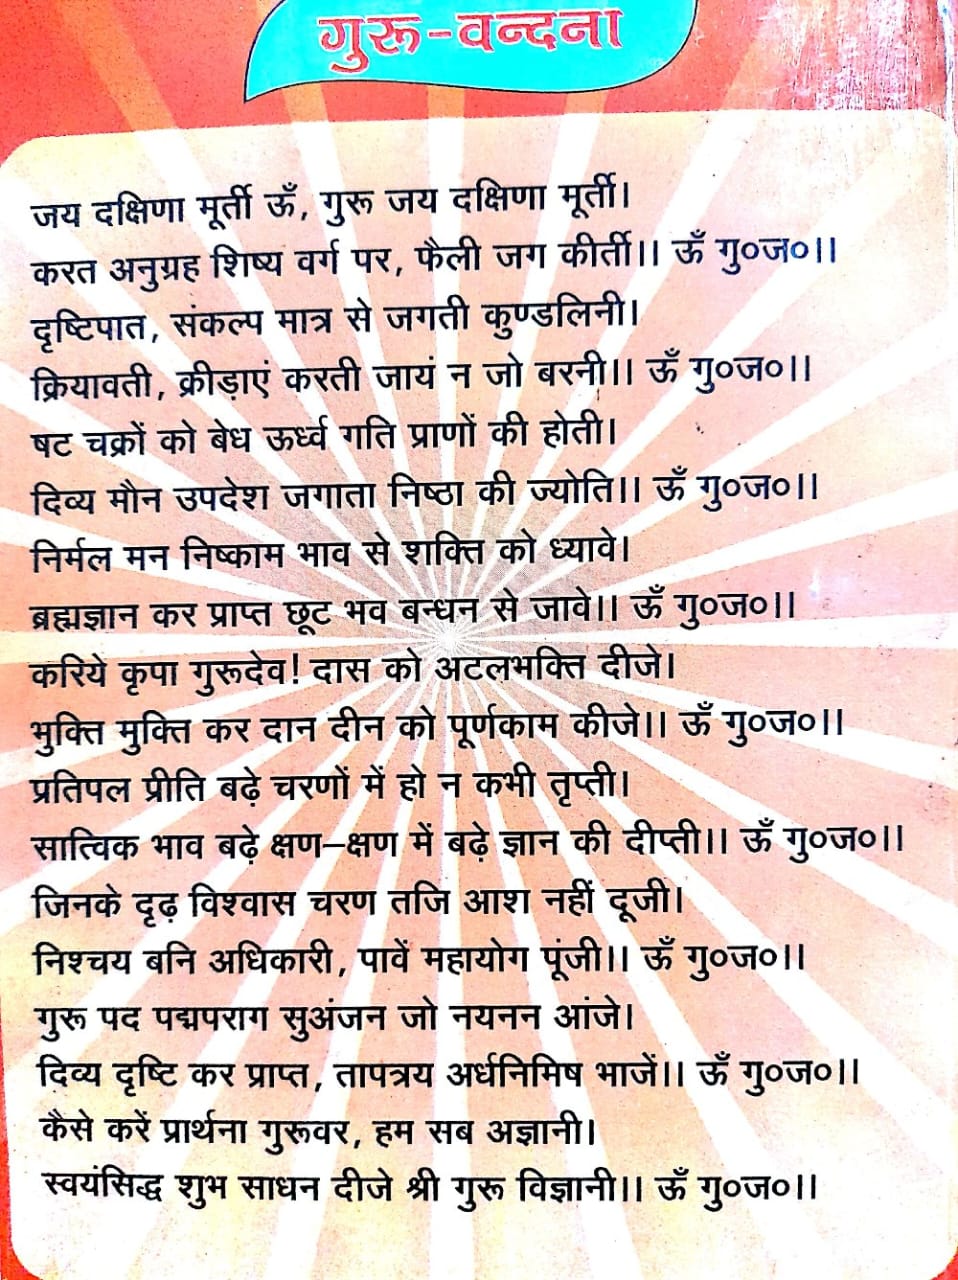 गुरू-वन्दना
जय दक्षिणा मूर्ती ऊँ, गुरू जय दक्षिणा मूर्ती।
करत अनुग्रह शिष्य वर्ग पर, फैली जग कीर्ती।। ऊँ गु०ज०।।
दृष्टिपात, संकल्प मात्र से जगती कुण्डलिनी।
क्रियावती, क्रीड़ाएं करती जायं न जो बरनी।। ऊँ गु०ज०।।
षट चक्रों को बेध ऊर्ध्व गति प्राणों की होती।
दिव्य मौन उपदेश जगाता निष्ठा की ज्योति।। ऊँ गु०ज०।।
निर्मल मन निष्काम भाव से शक्ति को ध्यावे।
ब्रह्मज्ञान कर प्राप्त छूट भव बन्धन से जावे।। ऊँ गु०ज०।।
करिये कृपा गुरूदेव! दास को अटलभक्ति दीजे।
भुक्ति मुक्ति कर दान दीन को पूर्णकाम कीजे।। ऊँ गु०ज०।।
प्रतिपल प्रीति बढ़े चरणों में हो न कभी तृप्ती।
सात्विक भाव बढ़े क्षण–क्षण में बढ़े ज्ञान की दीप्ती।। ऊँ गु०ज०।।
जिनके दृढ़ विश्वास चरण तजि आश नहीं दूजी।
निश्चय बनि अधिकारी, पावें महायोग पूंजी।। ऊँ गु०ज०।।
गुरू पद पद्मपराग सुअंजन जो नयनन आंजे।
दिव्य दृष्टि कर प्राप्त, तापत्रय अर्धनिमिष भाजें।। ऊँ गु०ज०।।
कैसे करें प्रार्थना गुरूवर, हम सब अज्ञानी।
स्वयंसिद्ध शुभ साधन दीजे श्री गुरू विज्ञानी।। ऊँ गु०ज०।।